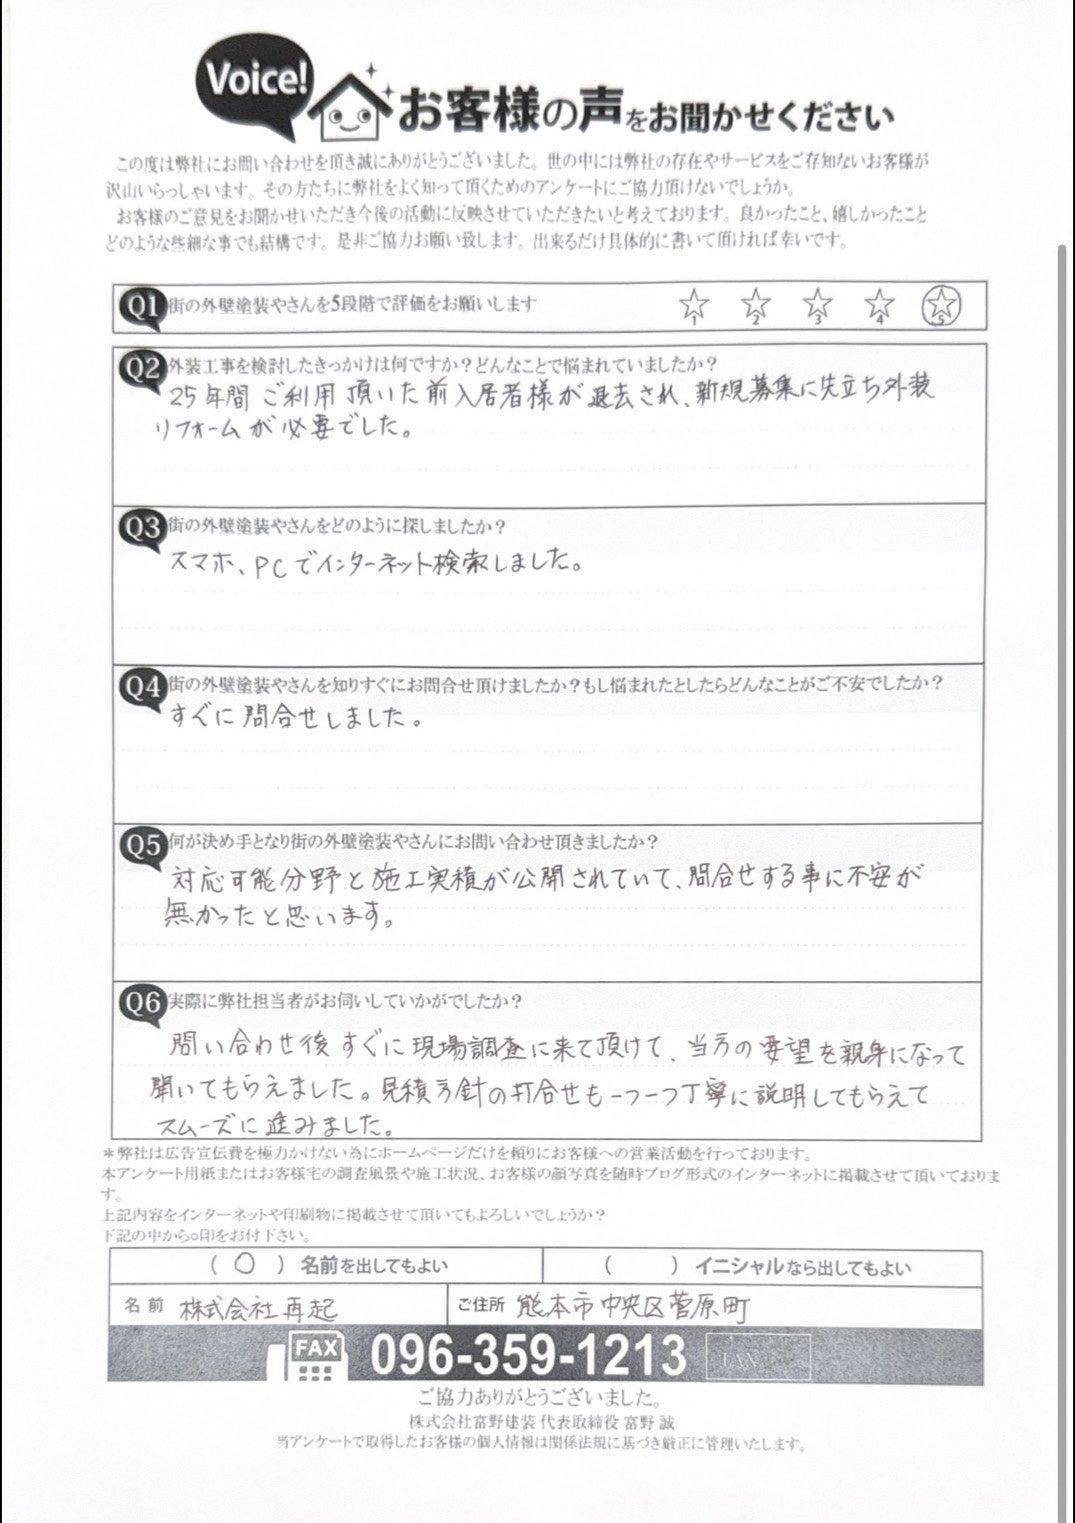 Voice!
お客様の声をお聞かせください
この度は弊社にお問い合わせを頂き誠にありがとうございました。世の中には弊社の存在やサービスをご存知ないお客様が
沢山いらっしゃいます。その方たちに弊社をよく知って頂くためのアンケートにご協力頂けないでしょうか。
お客様のご意見をお聞かせいただき今後の活動に反映させていただきたいと考えております。良かったこと、嬉しかったこと
どのような些細な事でも結構です。是非ご協力お願い致します。出来るだけ具体的に書いて頂ければ幸いです。
Q1 街の外壁塗装やさんを5段階で評価をお願いします
1 2 3 4 5
Q2 外装工事を検討したきっかけは何ですか？どんなことで悩まれていましたか？
25年間ご利用頂いた前入居者様が退去され、新規募集に先立ち外装
リフォームが必要でした。
Q3 街の外壁塗装やさんをどのように探しましたか？
スマホ、PCでインターネット検索しました。
Q4 街の外壁塗装やさんを知りすぐにお問合せ頂けましたか？もし悩まれたとしたらどんなことがご不安でしたか？
すぐに問合せしました。
Q5 何が決め手となり街の外壁塗装やさんにお問い合わせ頂きましたか？
対応可能分野と施工実積が公開されていて、問合せする事に不安が
無かったと思います。
Q6 実際に弊社担当者がお伺いしていかがでしたか？
問い合わせ後すぐに現場調査に来て頂けて、当方の要望を親身になって
聞いてもらえました。見積方針の打合せも一つ一つ丁寧に説明してもらえて
スムーズに進みました。
＊弊社は広告宣伝費を極力かけない為にホームページだけを頼りにお客様への営業活動を行っております。
本アンケート用紙またはお客様宅の調査風景や施工状況、お客様の顔写真を随時ブログ形式のインターネットに掲載させて頂いておりま
す。
上記内容をインターネットや印刷物に掲載させて頂いてもよろしいでしょうか？
下記の中から○印をお付下さい。
（ ○ ）名前を出してもよい （ ）イニシャルなら出してもよい
名前 株式会社再起 ご住所 熊本市中央区菅原町
FAX 096-359-1213 FAX
ご協力ありがとうございました。
株式会社富野建装 代表取締役 富野 誠
当アンケートで取得したお客様の個人情報は関係法規に基づき厳正に管理いたします。